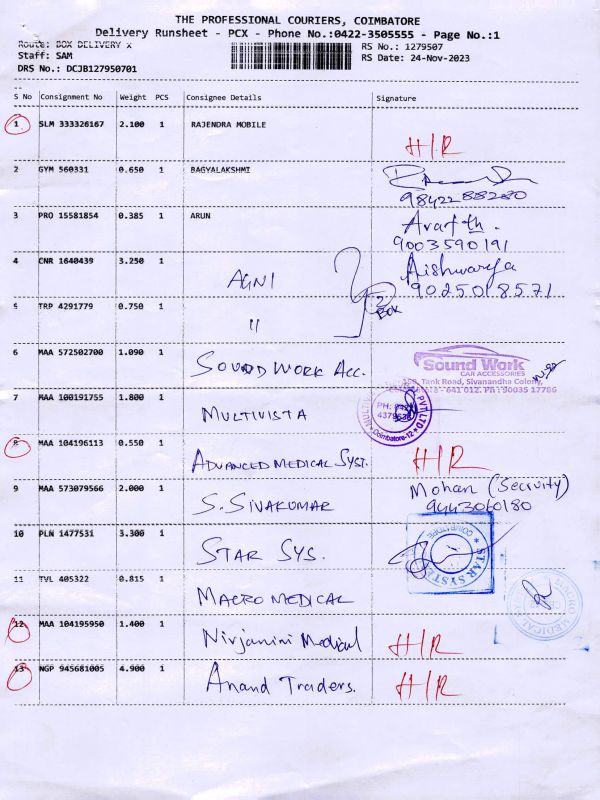 THE PROFESSIONAL COURIERS, COIMBATORE
Delivery Runsheet - PCX - Phone No.:0422-3505555 - Page No.:1
Route: BOX DELIVERY x RS No.: 1279507
Staff: SAM RS Date: 24-Nov-2023
DRS No.: DCJB127950701
S No Consignment No Weight PCS Consignee Details Signature
1 SLM 333326167 2.100 1 RAJENDRA MOBILE H/R
2 GYM 560331 0.650 1 BAGYALAKSHMI
9842288280
3 PRO 15581854 0.385 1 ARUN
9003590191
4 CNR 1640439 3.250 1 AGNI Aishwarya
9025018571
5 TRP 4291779 0.750 1 " 2 Box
6 MAA 572502700 1.090 1 SOUND WORK ACC. Sound Work
CAR ACCESSORIES
Tank Road, Sivanandha Colony,
641 012. Ph: 90035 17786
7 MAA 100191755 1.800 1 MULTIVISTA
PVT LTD
Coimbatore-12
8 MAA 104196113 0.550 1 ADVANCED MEDICAL SYST. H/R
9 MAA 573079566 2.000 1 S. SIVAKUMAR Mohan (Secruity)
9443060180
10 PLN 1477531 3.300 1 STAR SYS. STAR SYSTE
COIMBATORE
11 TVL 405322 0.815 1 MACRO MEDICAL
12 MAA 104195950 1.400 1 Nirjanini Medical H/R
13 NGP 945681005 4.900 1 Anand Traders. H/R